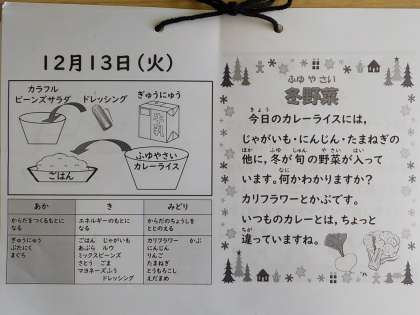 12月13日(火)
カラフル
ビーンズサラダ
ドレッシング
ぎゅうにゅう
牛乳
ふゆやさい
カレーライス
ごはん
あか き みどり
からだをつくるもとに
なる
エネルギーのもとに
なる
からだのちょうしを
ととのえる
ぎゅうにゅう
ぶたにく
まぐろ
ごはん じゃがいも
あぶら ルウ
ミックスビーンズ
さとう ごま
マヨネーズふう
ドレッシング
カリフラワー かぶ
にんじん
りんご
たまねぎ
とうもろこし
えだまめ
ふゆやさい
冬野菜
きょう
今日のカレーライスには、
じゃがいも・にんじん・たまねぎの
ほか ふゆ しゅん やさい はい
他に、冬が旬の野菜が入って
なに
います。何かわかりますか?
カリフラワーとかぶです。
いつものカレーとは、ちょっと
ちが
違っていますね。